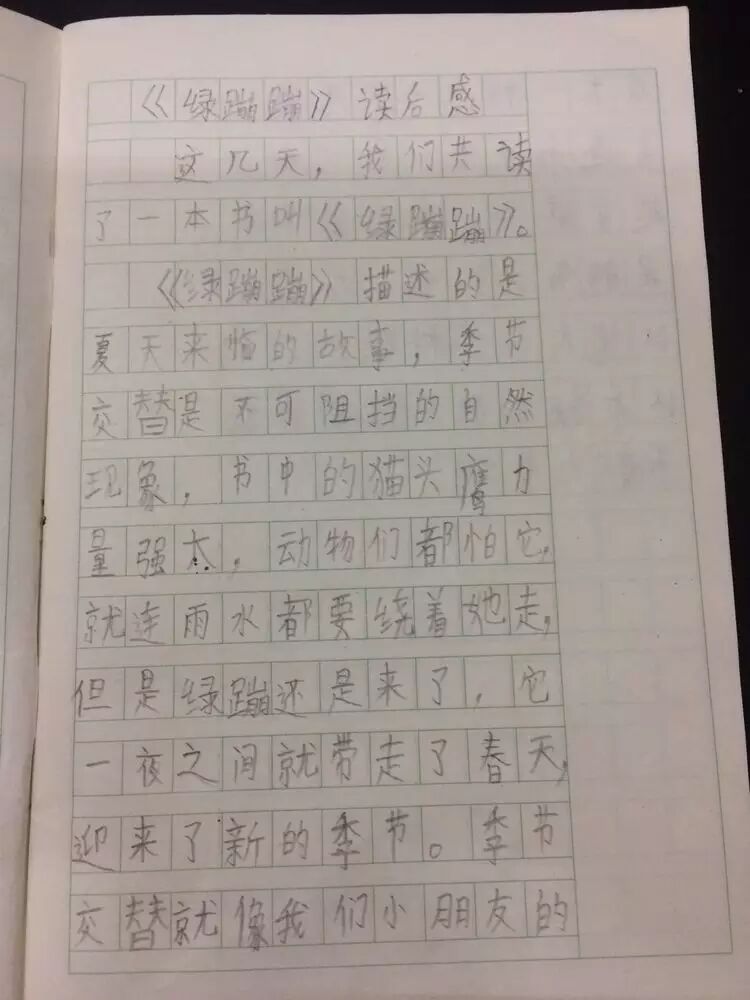 《绿蹦蹦》读后感
这几天，我们共读
了一本书叫《绿蹦蹦》。
《绿蹦蹦》描述的是
夏天来临的故事，季节
交替是不可阻挡的自然
现象，书中的猫头鹰力
量强大，动物们都怕它，
就连雨水都要绕着她走，
但是绿蹦还是来了，它
一夜之间就带走了春天，
迎来了新的季节。季节
交替就像我们小朋友的